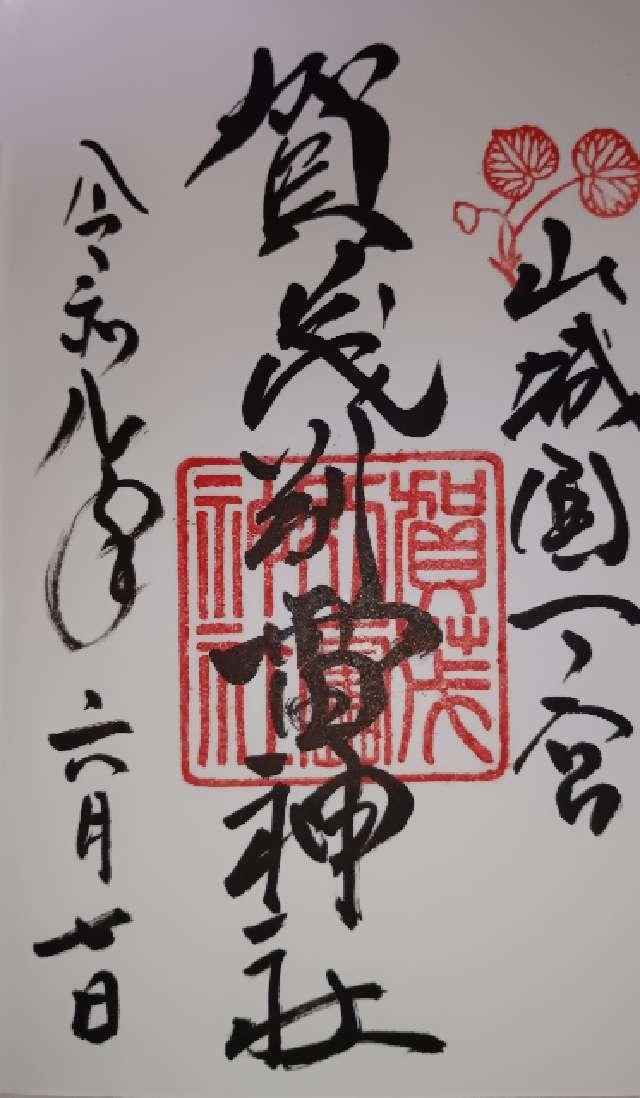 山城國一ノ宮
賀茂別雷神社
賀茂
別雷
神社
令和八年六月七日